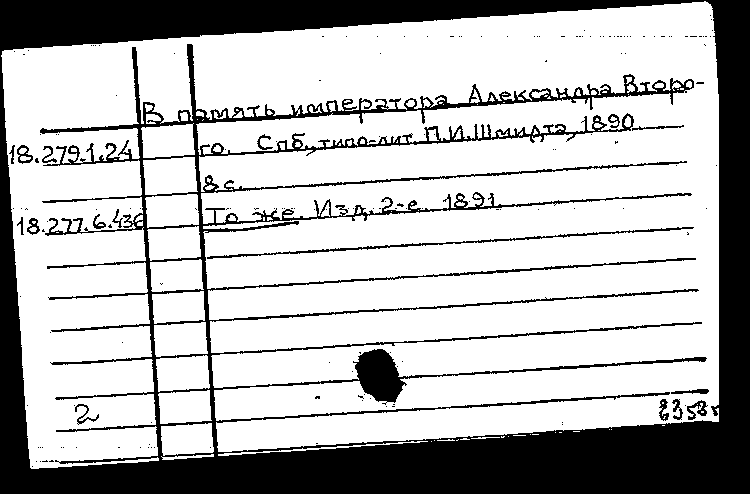 В память императора Александра Второ-
18.279.1.24 го. Спб., типо-лит. П.И.Шмидта, 1890.
8 с.
18.277.6.436 То же. Изд. 2-е. 1891.
2